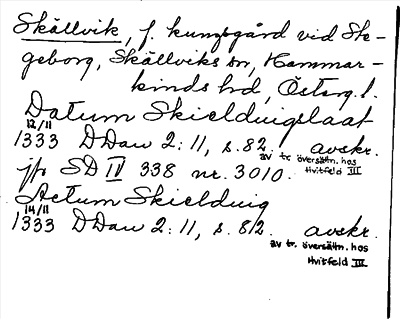 Skällvik, f. kungsgård vid Ste-
geborg, Skällviks sn, Hammar-
kinds hd, Österg.l.
Datum Skieldvigslaat
12/11
1333 DDan 2:11, s. 82. avskr.
av tr. översättn. hos
Hvitfeld III
jfr SD IV 338 nr. 3010.
Actum Skieldvig
14/11
1333 DDan 2:11, s. 82. avskr.
av tr. översättn. hos
Hvitfeld III